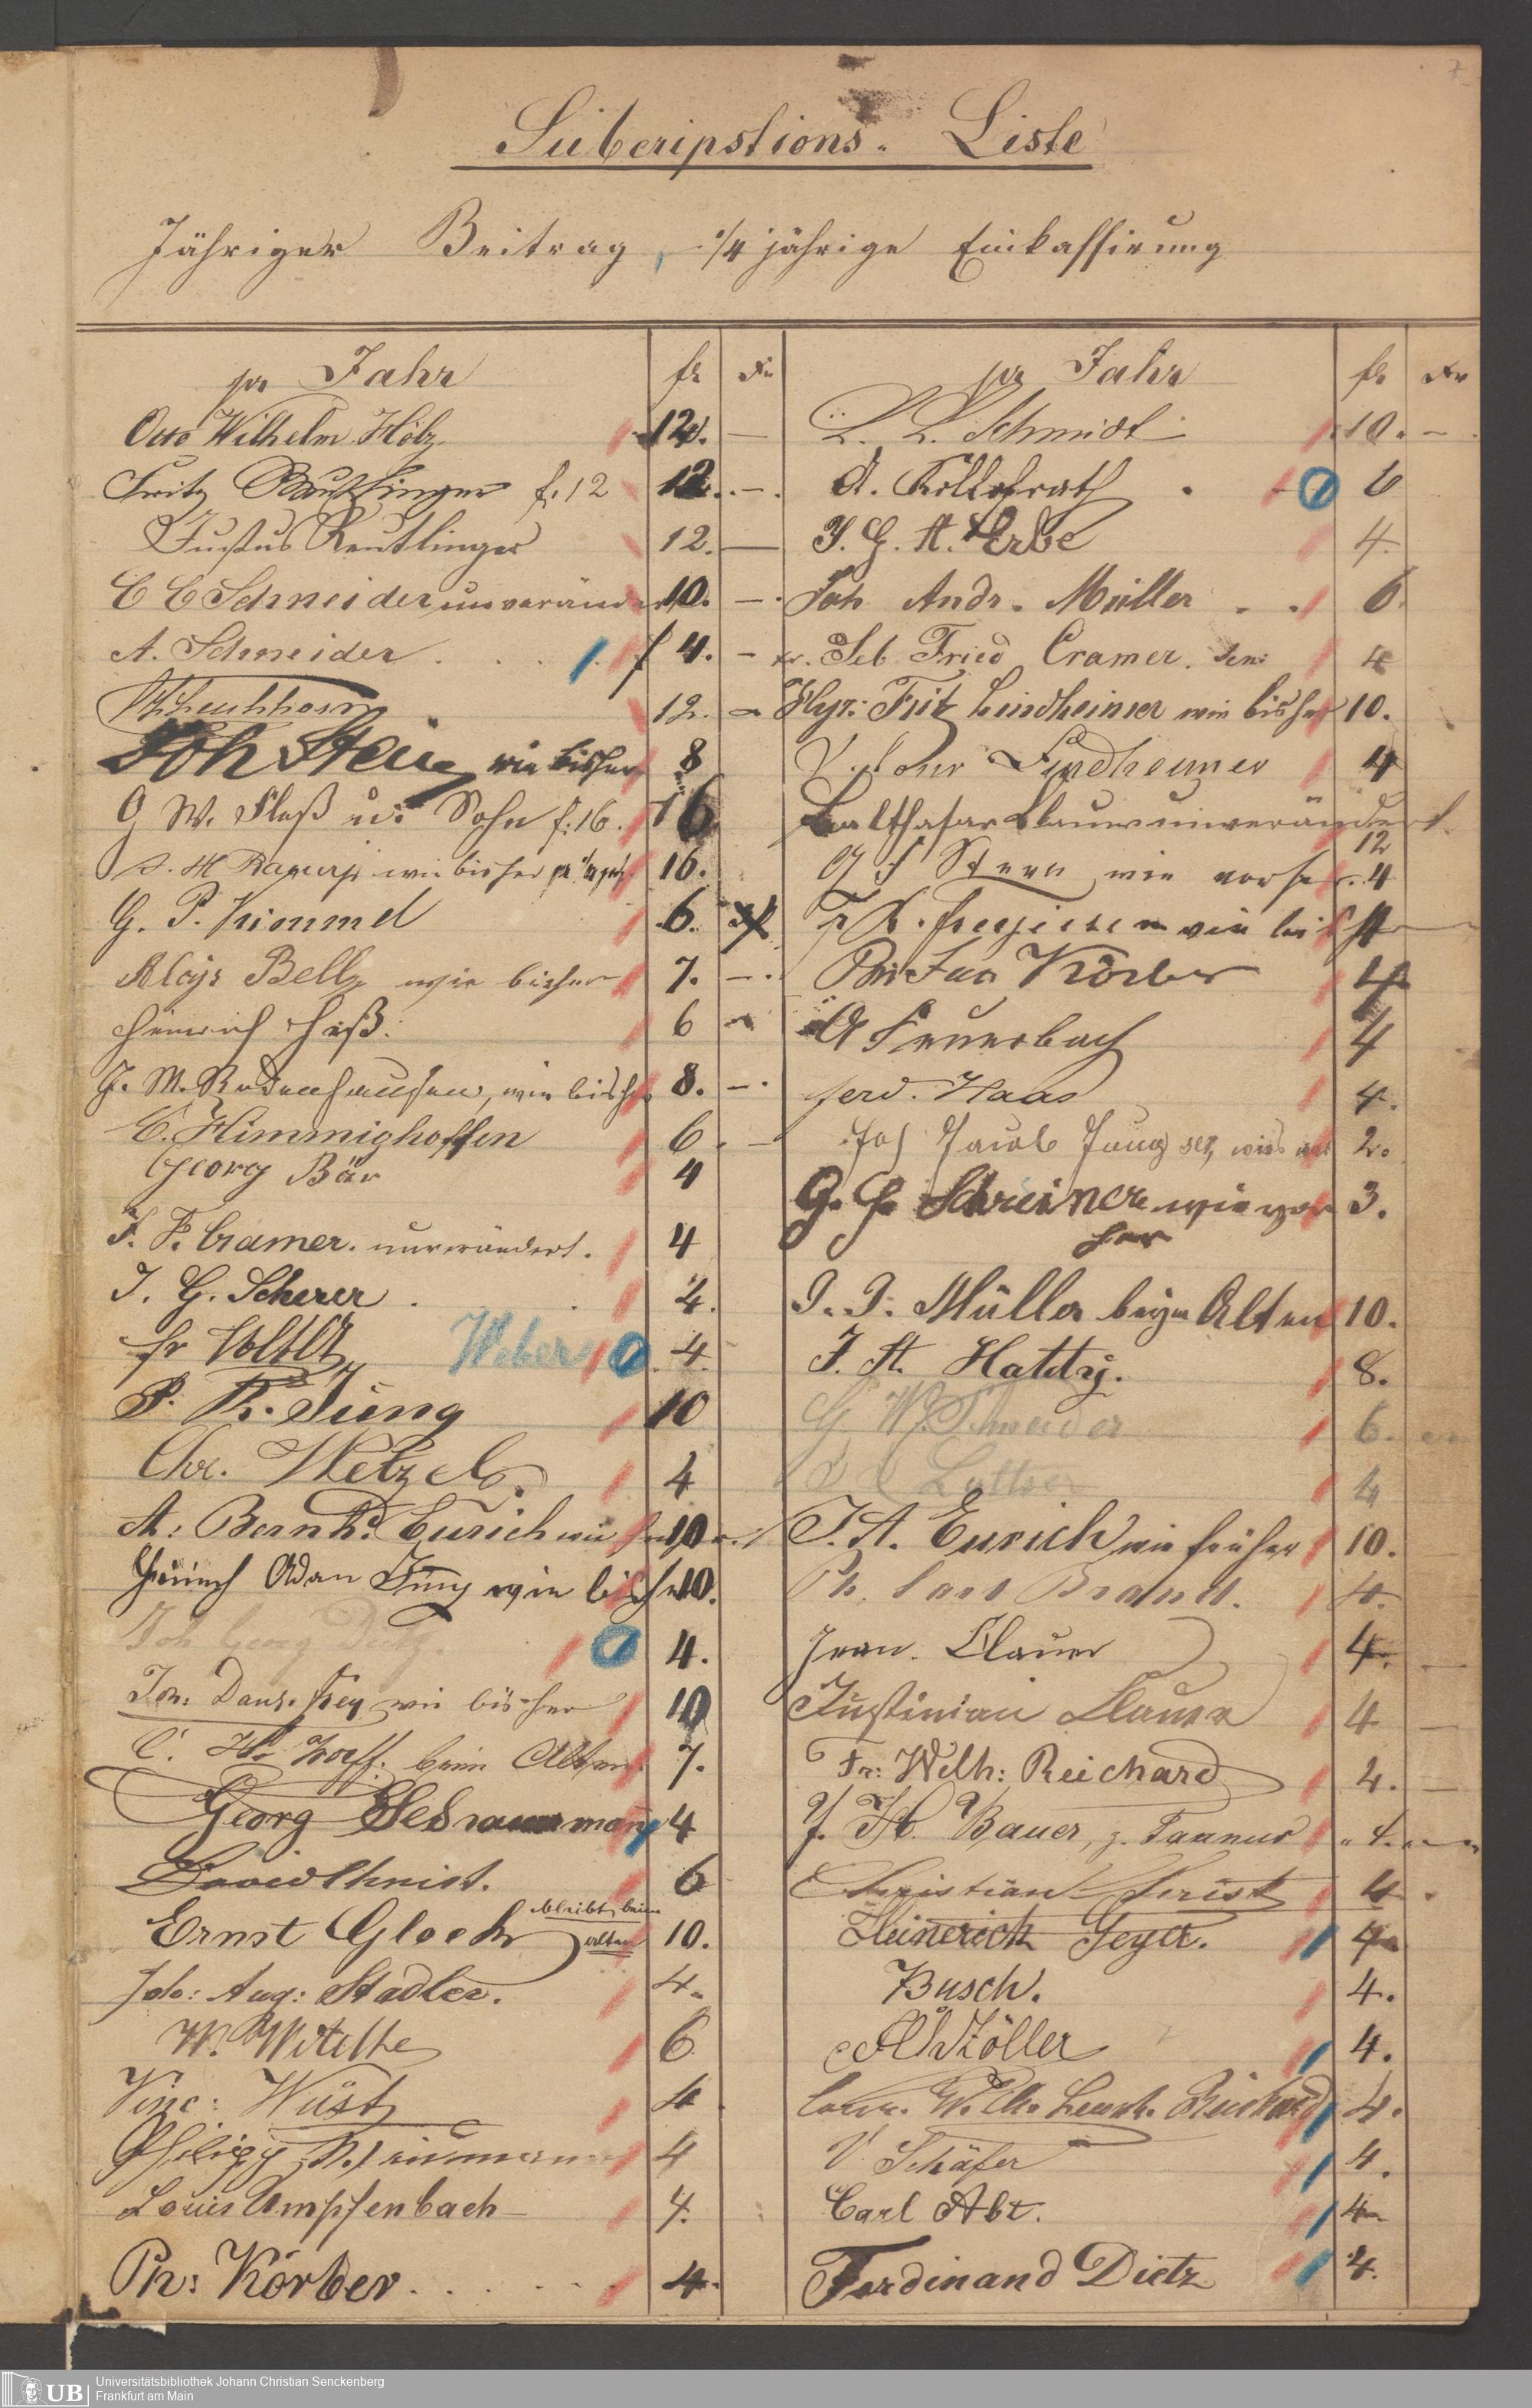 7
Subcripstions. Liste
Jähriger Beitrag, 1/4 jährige Einkassirung
pr Jahr fl Kr
Otto Wilhelm Hölz 12. —
Fritz Reutlinger f. 12 12. —
Justus Reutlinger 12. —
C C Schneider unverändert 10. —
A. Schneider f 4. —
12. —
Joh Stein wie bisher 8
G W. Floß u. Sohn f. 16. 16
wie bisher 16.
G. P. Kimmel 6.
Aloys Belly wie bisher 7. —
Heinrich Heß. 6 —
J. M. Rodenhausen, wie bisher 8. —
C. Himmighoffen 6. —
Georg Bär 4
J. F. Cramer. unverändert. 4
J. G. Scherer 4.
fr Volltz Weber 4.
P. R. Jung 10
Chr. Wetzel 4
A: Bernhd. Eurich wie 10
Heinrich Adam Jung wie bisher 10.
Joh. Georg Dietz. 4.
Joh: Danl. Frey wie bisher 10
C. Hr. Zorff: beim Alten 7.
Georg 4
David Christ. 6
Ernst Glock bleibt beim alten 10.
Joh: Aug: Stadler. 4.
W. Witthe 6
Vinc: Wüst 4
Philipp 4
Louis Umpfenbach 4.
Ph: Körber 4.
pr Jahr fl Kr
L. L. Schmidt 10. —
A. Kollofrath 6
J. G. A. Erbe 4.
Joh Andr. Müller 6.
Seb Fried Cramer. sen: 4
Fritz Lindheimer wie bisher 10.
Lindheimer 4
Balthasar Klauer unverändert.
12
G F Stern wie vorher. 4
wie bisher 4
Körber 4.
A Feuerbach 4
ferd. Haas 4.
Joh Jacob Jung 2.
G. H. Schreiner wie vorher 3.
J. J. Müller beym Alten 10.
J. A. Hattig. 8.
G W. Schneider 6.
4
J. A. Eurich wie früher 10.
Ph. Carl Brand. 4.
Jean. Klauer 4. —
Justinian Klauer 4 —
Fr: Wilh: Reichard 4. —
J. H. Bauer, z. Taunus 4.
Christian Christ 4.
Heinerich Geyer. 4
Busch. 4.
A Zöller 4.
Reichard 4.
V Schäfer 4.
Carl Abt. 4
Ferdinand Dietz 4.
UB Universitätsbibliothek Johann Christian Senckenberg
Frankfurt am Main